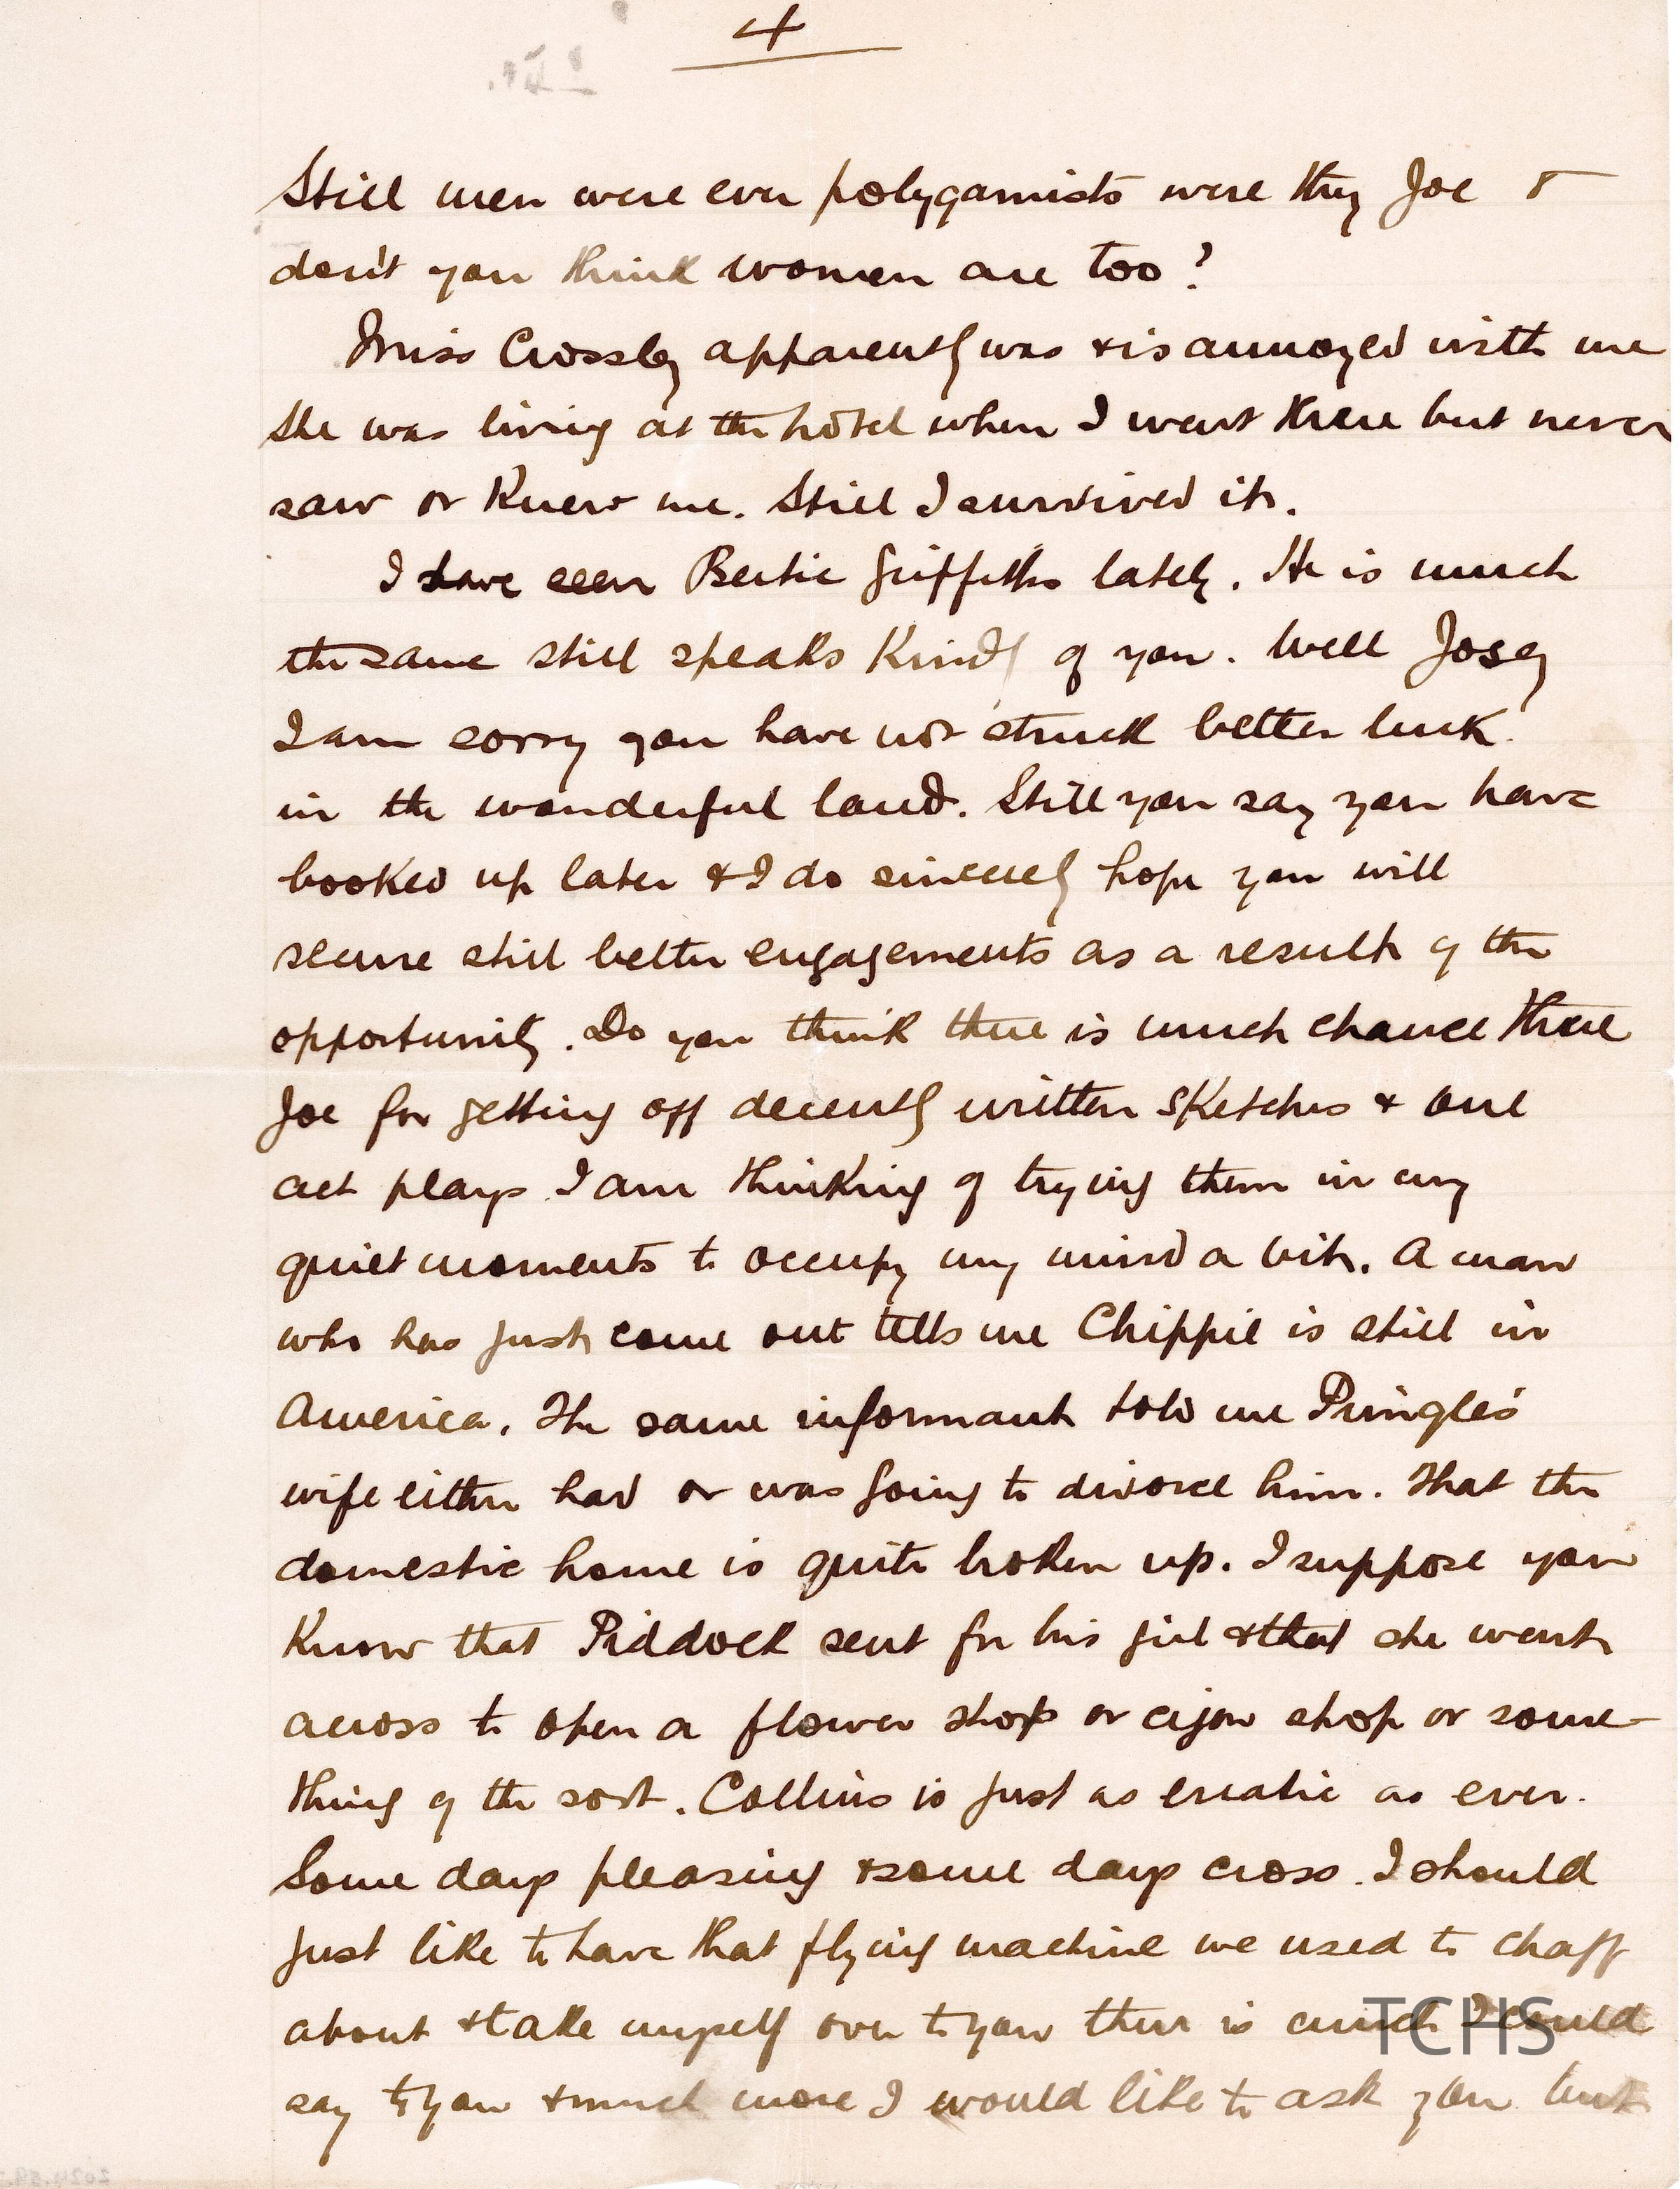 4
Still men were ever polygamists were they Joe &
don't you think women are too?
Miss Crossley apparently was & is annoyed with me
She was living at the hotel when I went there but never
saw or knew me. Still I survived it.
I have seen Bertie Griffiths lately. He is much
the same still speaks kindly of you. Well Josey
I am sorry you have not struck better luck
in the wonderful land. Still you say you have
booked up later & I do sincerely hope you will
secure still better engagements as a result of the
opportunity. Do you think there is much chance there
Joe for getting off decently written sketches & one
act plays I am thinking of trying them in my
quiet moments to occupy my mind a bit. A man
who has just come out tells me Chippie is still in
America. The same informant told me Pringle's
wife either had or was going to divorce him. That the
domestic home is quite broken up. I suppose you
know that Piddock sent for his girl & that she went
across to open a flower shop or cigar shop or some-
thing of the sort. Collins is just as erratic as ever.
Some days pleasing & some days cross. I should
just like to have that flying machine we used to chaff
about & take myself over to you there is much I could
say to you & much more I would like to ask you but
TCHS